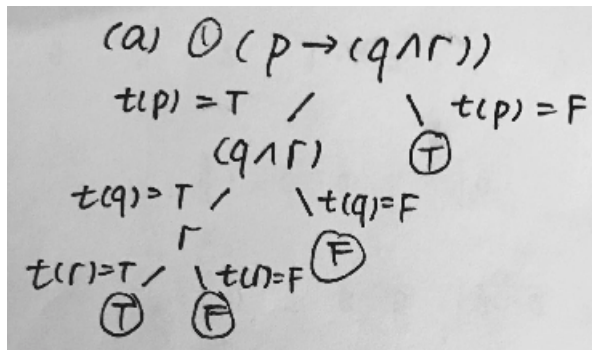 (a) ① (p→(q∧r))
t(p)=T / \ t(p)=F
(q∧r) Ⓣ
t(q)=T / \ t(q)=F
r Ⓕ
t(r)=T / \ t(r)=F
Ⓣ Ⓕ